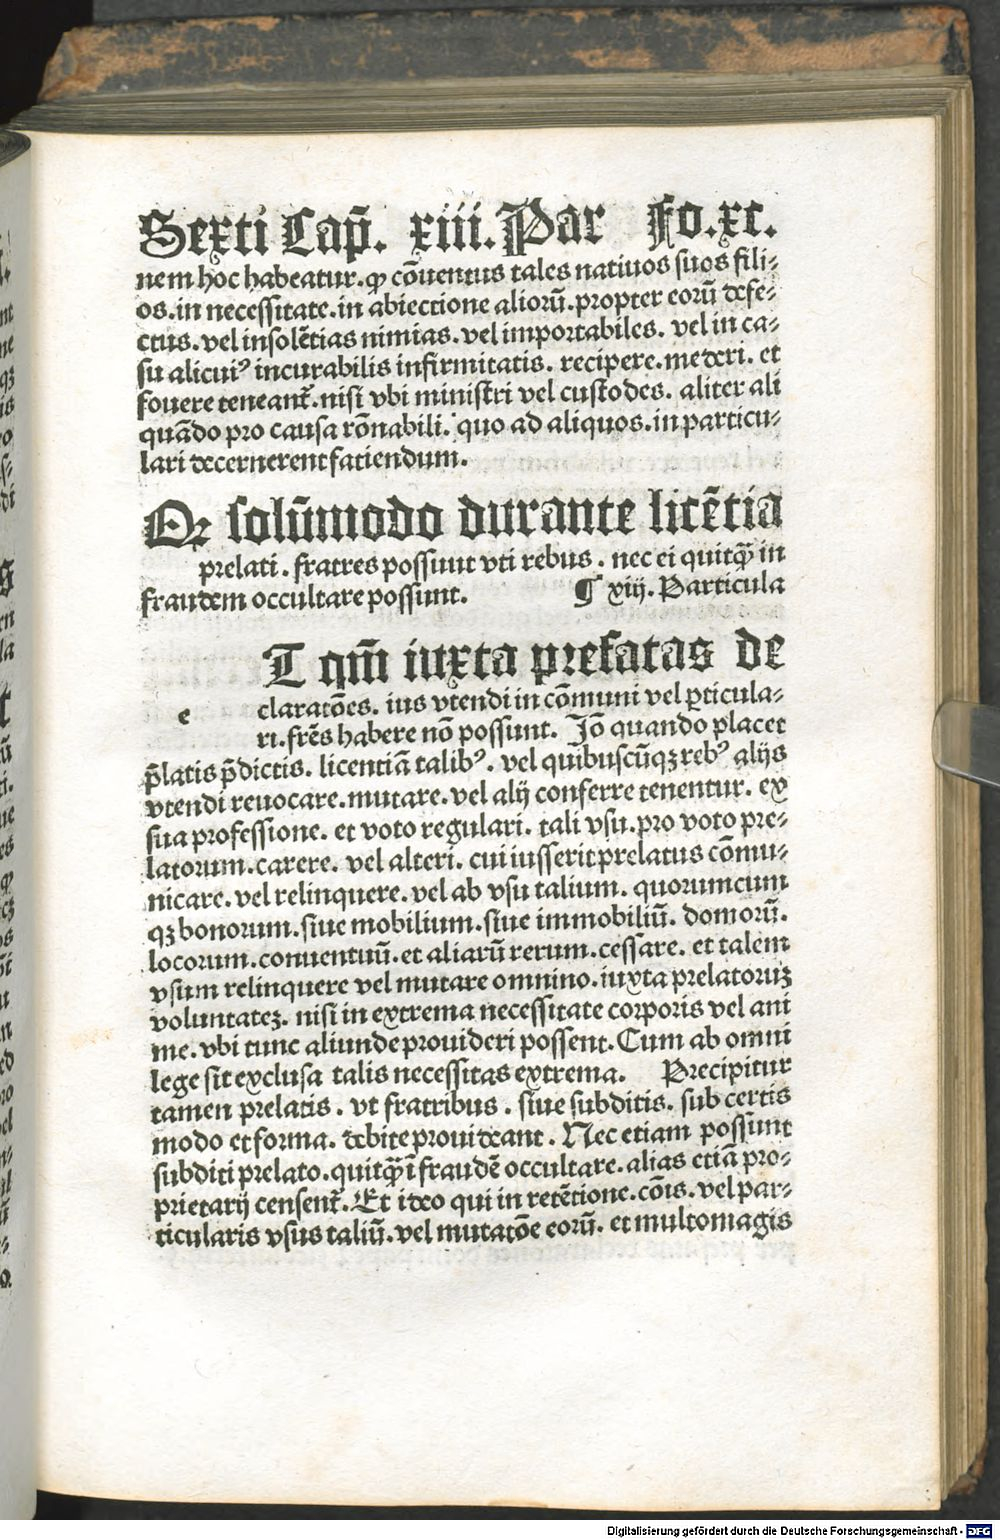 Sexti Cap̄. xiii. Par Fo.xc.
nem hoc habeatur. ꝙ cōuentus tales natiuos suos fili⸗
os. in necessitate. in abiectione aliorū. propter eorū defe⸗
ctus. vel insolētias nimias. vel importabiles. vel in ca⸗
su alicuiꝰ incurabilis infirmitatis. recipere. mederi. et
fouere teneant᷑. nisi vbi ministri vel custodes. aliter ali
quādo pro causa rōnabili. quo ad aliquos. in particu⸗
lari decernerent fatiendum.
Qꝛ solūmodo durante licētia
prelati. fratres possunt vti rebus. nec ei quitꝙ̄ in
fraudem occultare possunt. ¶ xiij. Particula
T qm̄ iuxta prefatas de
e claratōes. ius vtendi in cōmuni vel ꝑticula⸗
ri. frēs habere nō possunt. Jō quando placet
p̄latis p̄dictis. licentiā talibꝰ. vel quibuscūqꝫ rebꝰ alijs
vtendi reuocare. mutare. vel alij conferre tenentur. ex
sua professione. et voto regulari. tali vsu. pro voto pre⸗
latorum. carere. vel alteri. cui iusserit prelatus cōmu⸗
nicare. vel relinquere. vel ab vsu talium. quorumcum
qꝫ bonorum. siue mobilium. siue immobiliū. domorū.
locorum. conuentuū. et aliarū rerum. cessare. et talem
vsum relinquere vel mutare omnino. iuxta prelatoruꝫ
voluntateꝫ. nisi in extrema necessitate corporis vel ani
me. vbi tunc aliunde prouideri possent. Cum ab omni
lege sit exclusa talis necessitas extrema. Precipitur
tamen prelatis. vt fratribus. siue subditis. sub certis
modo et forma. debite prouideant. Nec etiam possunt
subditi prelato. quitꝙ̄ ī fraudē occultare. alias etiā pro⸗
prietarij censent᷑. Et ideo qui in retētione. cōis. vel par⸗
ticularis vsus taliū. vel mutatōe eorū. et multomagis
Digitalisierung gefördert durch die Deutsche Forschungsgemeinschaft - DFG